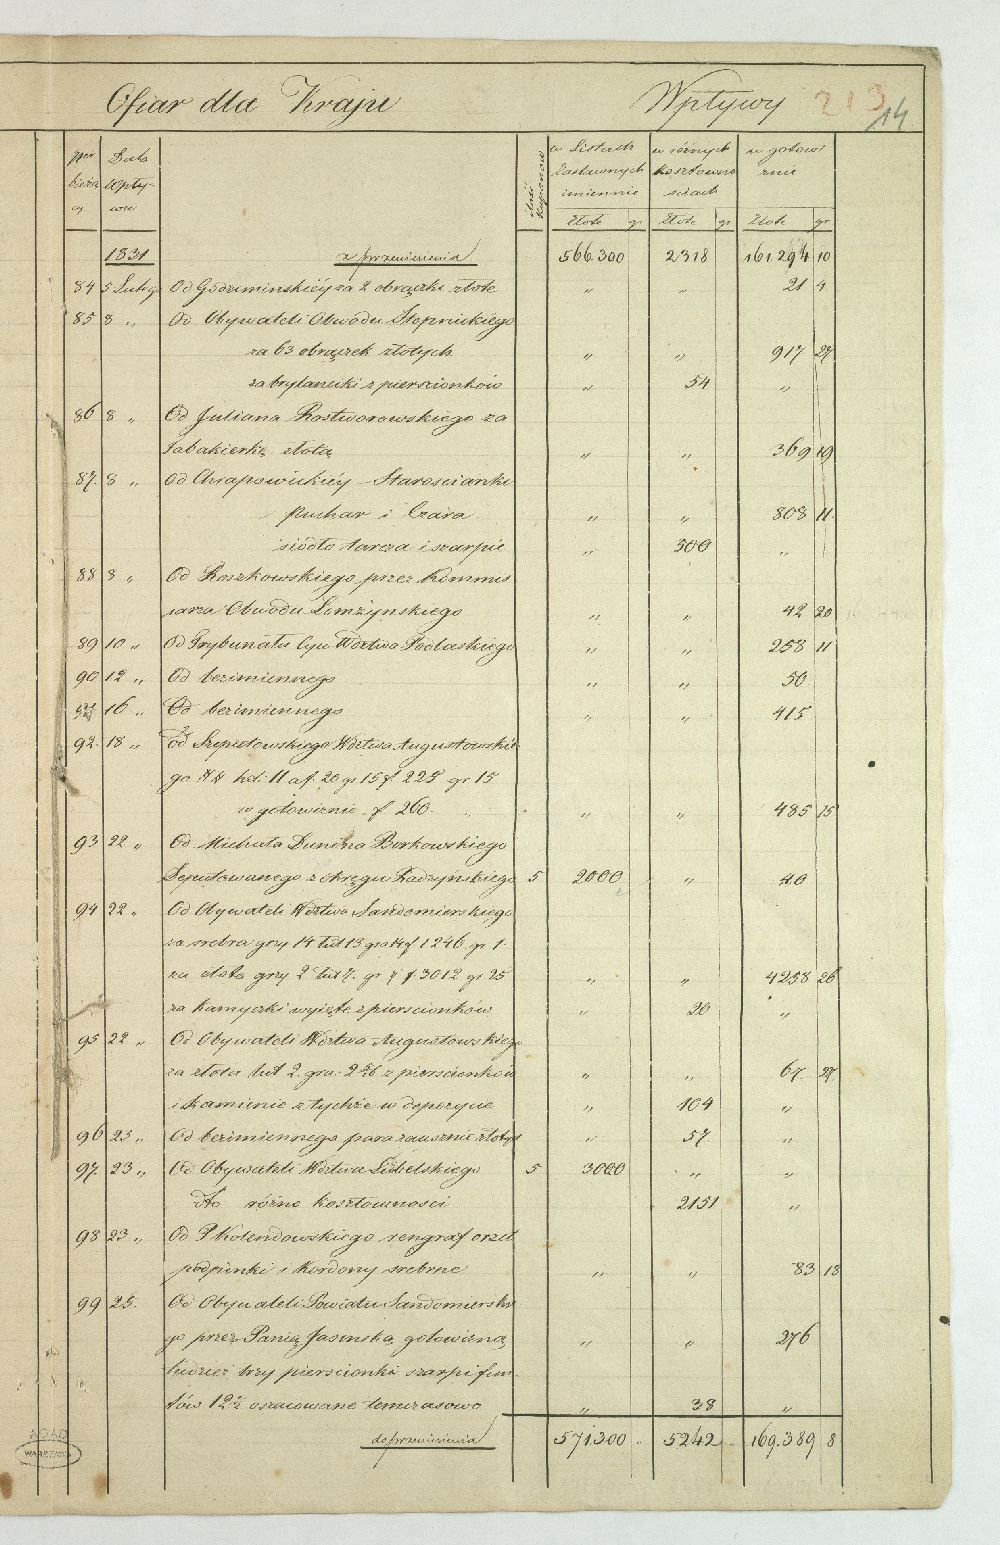 Ofiar dla Kraju Wpływy 213 14
Ner bieżą cy Data Wpły- wu ilość kuponów w Listach Zastawnych imiennie w różnych kosztowno ściach w gotowi znie
złote gr złote gr złote gr
1831 z przeniesienia 566.300 2318 161.294 10
84 5 Lutg Od Godziminskiéy za 2 obrączki złote " " 21 4
85 8 " Od Obywateli Obwodu Stopnickiego
za 63 obrączek złotych " " 917 27
za brylanciki z pierscionków " 54 "
86 8 " Od Juliana Rostworowskiego za
tabakierkę złotą " " 369 19
87 8 " Od Chrapowickiéy Starościanki
puchar i Czara " " 808 11
siodło tarcza i szarpie " 300 "
88 8 " Od Roszkowskiego przez Kommis
sarza Obwodu Łomżynskiego " " 42 20
89 10 " Od Trybunału Cyw Wdztwa Podlaskiego " " 258 11
90 12 " Od bezimiennego " " 50
91 16 " Od bezimiennego " " 415
92 18 " Od Szepietowskiego Wdztwa Augustowskie
go hol. 11 a f. 20 gr 15 f 225 gr 15
w gotowiznie f 260 " " 485 15
93 22 " Od Michała Dunina Borkowskiego
Deputowanego z okręgu Radzyńskiego 5 2000 " 40
94 22 " Od Obywateli Wdztwa Sandomierskiego
za srebra grzy 14 łut 13 gra 14 f 1246 gr 1
za złoto grzy 2 łut 7 gr 7 f 3012 gr 25 " " 4258 26
za kamyczki wyięte z pierscionków " 20 "
95 22 " Od Obywateli Wdztwa Augustowskiego
za złota łut 2. gra. 2 z pierscionków " " 67 27
i kamienie z tychże w depozycie " 104 "
96 23 " Od bezimiennego para zausznic złotych " 57 "
97 23 " Od Obywateli Wdztwa Lubelskiego 5 3000 " "
dto różne kosztowności 2151 "
98 23 " Od P Kolendowskiego rengraf orzeł
podpinki i Kordony srebrne " " 83 18
99 25 Od Obywateli Powiatu Sandomierskie
go przez Panią Jasinską gotowizną " " 276
tudzież trzy pierscionki szarpi fun
tów 12½ oszacowane temczasowo " 38 "
do przeniesienia 571300 " 5242 " 169.389 8
AGAD
WARSZAWA